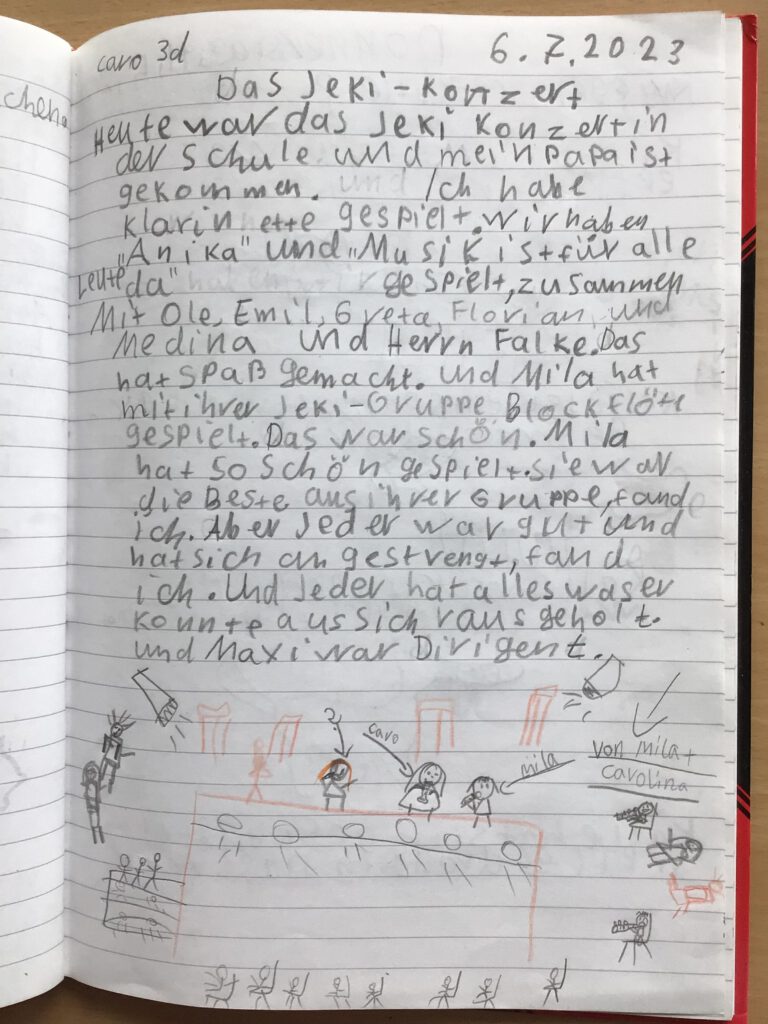 chen.
caro 3d
6.7.2023
Das Jeki-Konzert
Heute war das Jeki Konzert in
der Schule und mein Papa ist
gekommen. Ich habe
klarinette gespielt. wir haben
„Anika" und „Musik ist für alle
Leute da" gespielt, zusammen
Mit Ole, Emil, Greta, Florian, und
Medina und Herrn Falke. Das
hat SPaß gemacht. und Mila hat
mit ihrer Jeki-Gruppe Blockflöte
gespielt. Das war schön. Mila
hat so schön gespielt. sie war
die Beste aus ihrer Gruppe, fand
ich. Aber Jeder war gut und
hat sich angestrengt, fand
ich. Und Jeder hat alles was er
konnte aus sich raus geholt.
und Maxi war Dirigent.
?
caro
mila
von Mila +
Carolina